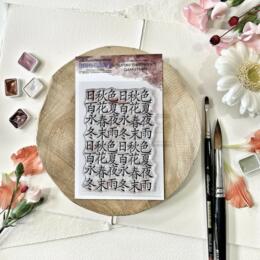 日秋色日秋色
百花夏百花夏
永春夜永春夜
冬末雨冬末雨
日秋色日秋色
百花夏百花夏
永春夜永春夜
冬末雨冬末雨